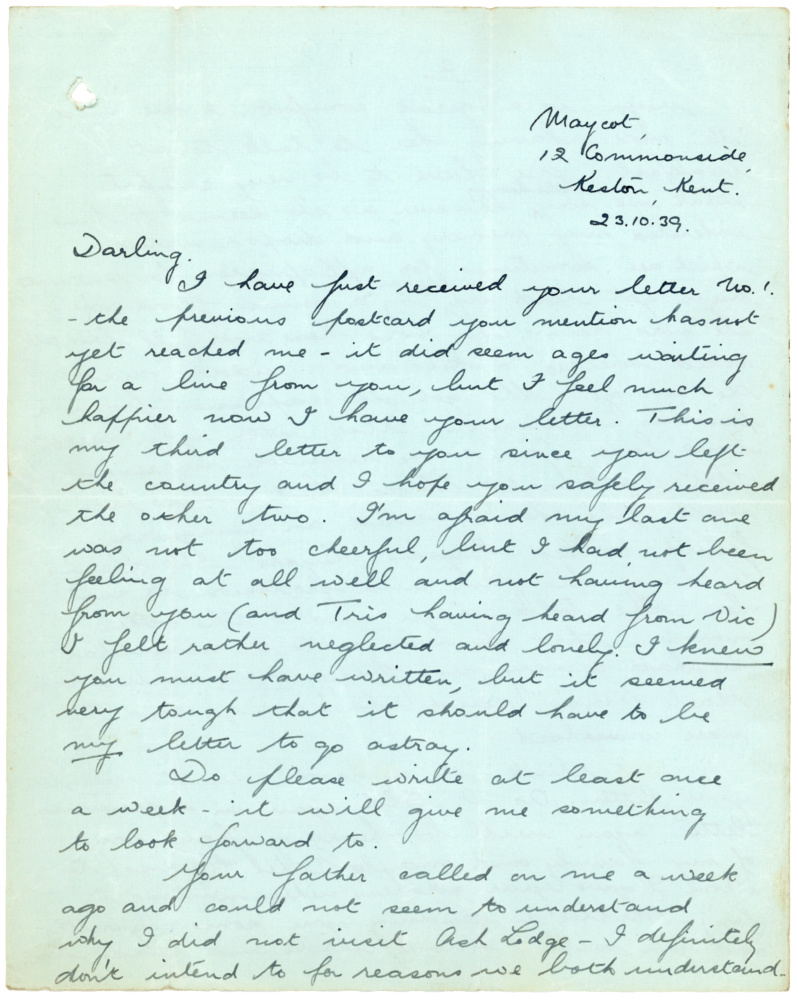 Maycot,
12 Commonside,
Keston, Kent.
23.10.39.
Darling.
I have just received your letter No.1.
- the previous postcard you mention has not
yet reached me - it did seem ages waiting
for a line from you, but I feel much
happier now I have your letter. This is
my third letter to you since you left
the country and I hope you safely received
the other two. I'm afraid my last one
was not too cheerful, but I had not been
feeling at all well and not having heard
from you (and Tris having heard from Vic)
I felt rather neglected and lonely. I knew
you must have written, but it seemed
very tough that it should have to be
my letter to go astray.
Do please write at least once
a week - it will give me something
to look forward to.
Your father called on me a week
ago and could not seem to understand
why I did not visit Ash Lodge - I definitely
don't intend to for reasons we both understand.